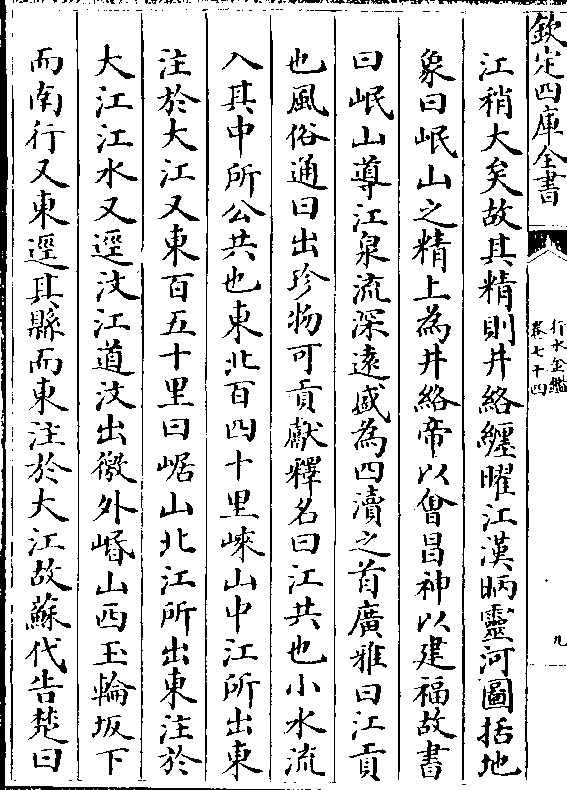 欽定四庫全書
行水金鑑
卷七十四
九
江稍大矣故其精則井絡纏曜江漢昞靈河圖括地
象曰岷山之精上為井絡帝以㑹昌神以建福故書
曰岷山導江泉流深逺盛為四瀆之首廣雅曰江貢
也風俗通曰出珍物可貢獻釋名曰江共也小水流
入其中所公共也東北百四十里崍山中江所出東
注於大江又東百五十里曰崌山北江所出東注於
大江江水又逕汶江道汶出徼外㟭山西玉輪坂下
而南行又東逕其縣而東注於大江故蘇代告楚曰